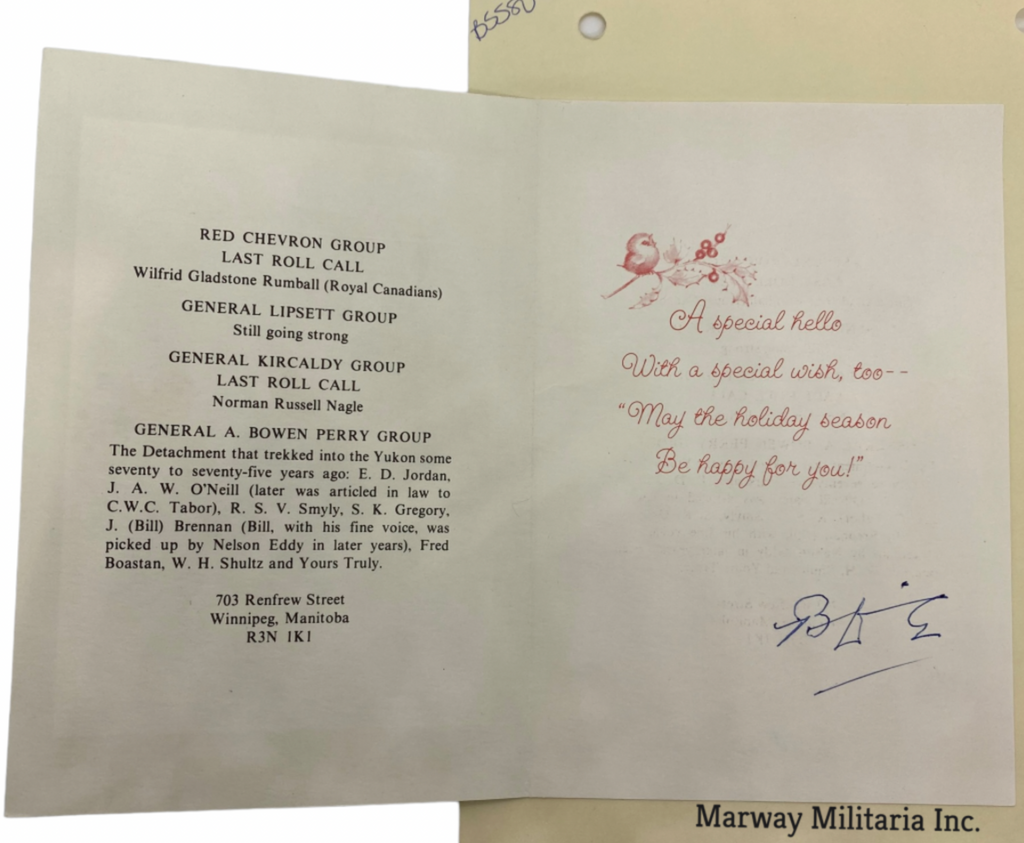 B5580
RED CHEVRON GROUP
LAST ROLL CALL
Wilfrid Gladstone Rumball (Royal Canadians)
GENERAL LIPSETT GROUP
Still going strong
GENERAL KIRCALDY GROUP
LAST ROLL CALL
Norman Russell Nagle
GENERAL A. BOWEN PERRY GROUP
The Detachment that trekked into the Yukon some
seventy to seventy-five years ago: E. D. Jordan,
J. A. W. O'Neill (later was articled in law to
C.W.C. Tabor), R. S. V. Smyly, S. K. Gregory,
J. (Bill) Brennan (Bill, with his fine voice, was
picked up by Nelson Eddy in later years), Fred
Boastan, W. H. Shultz and Yours Truly.
703 Renfrew Street
Winnipeg, Manitoba
R3N 1K1
A special hello
With a special wish, too--
"May the holiday season
Be happy for you!"
Marway Militaria Inc.